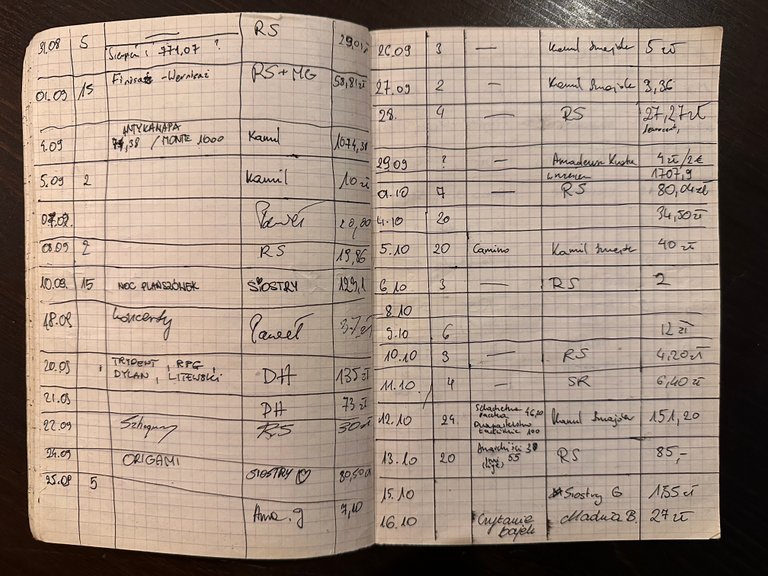 31.08 5 RS 29,01
Sierpień : 771,07 ?
01.09 15 Finisaż - Wernisaż RS + MG 58,81 zł
ANTYKANAPA
4.09 74,38 / MONTE 1000 Kamil 1074,38
5.09 2 Kamil 10 zł
07.09. Paweł 20,00
08.09 2 RS 19,86
10.09 15 NOC PLANSZÓWEK SIOSTRY 129,1
18.09 koncerty Paweł 37 zł
20.09 TRYDENT, RPG
DYLAN, LITEWSKI DH 135 zł
21.09 PH 73 zł
22.09 RS 30 zł
24.09 ORIGAMI
25.09 5 SIOSTRY ♡ 80,50 zł
Ama. g 7,10
26.09 3 — Kamil Smajda 5 zł
27.09 2 — Kamil Smajda 9,36
28. 4 — RS 27,27 zł
29.09 ? — 4 zł / 2 €
wrzesień 1707,9
01.10 7 — RS 80,04 zł
4.10 20 34,50 zł
5.10 20 Camino Kamil 40 zł
6.10 3 — RS 2
8.10
9.10 6 12 zł
10.10 3 — RS 4,20 zł
11.10 4 — SR 6,40 zł
Szlachetna 46,20
12.10 24 paczka Kamil Smajda 151,20
100
13.10 20 Anarchiści 30 RS 85,-
55
15.10 Siostry G 155 zł
16.10 Czytanie B. 27 zł
bajek